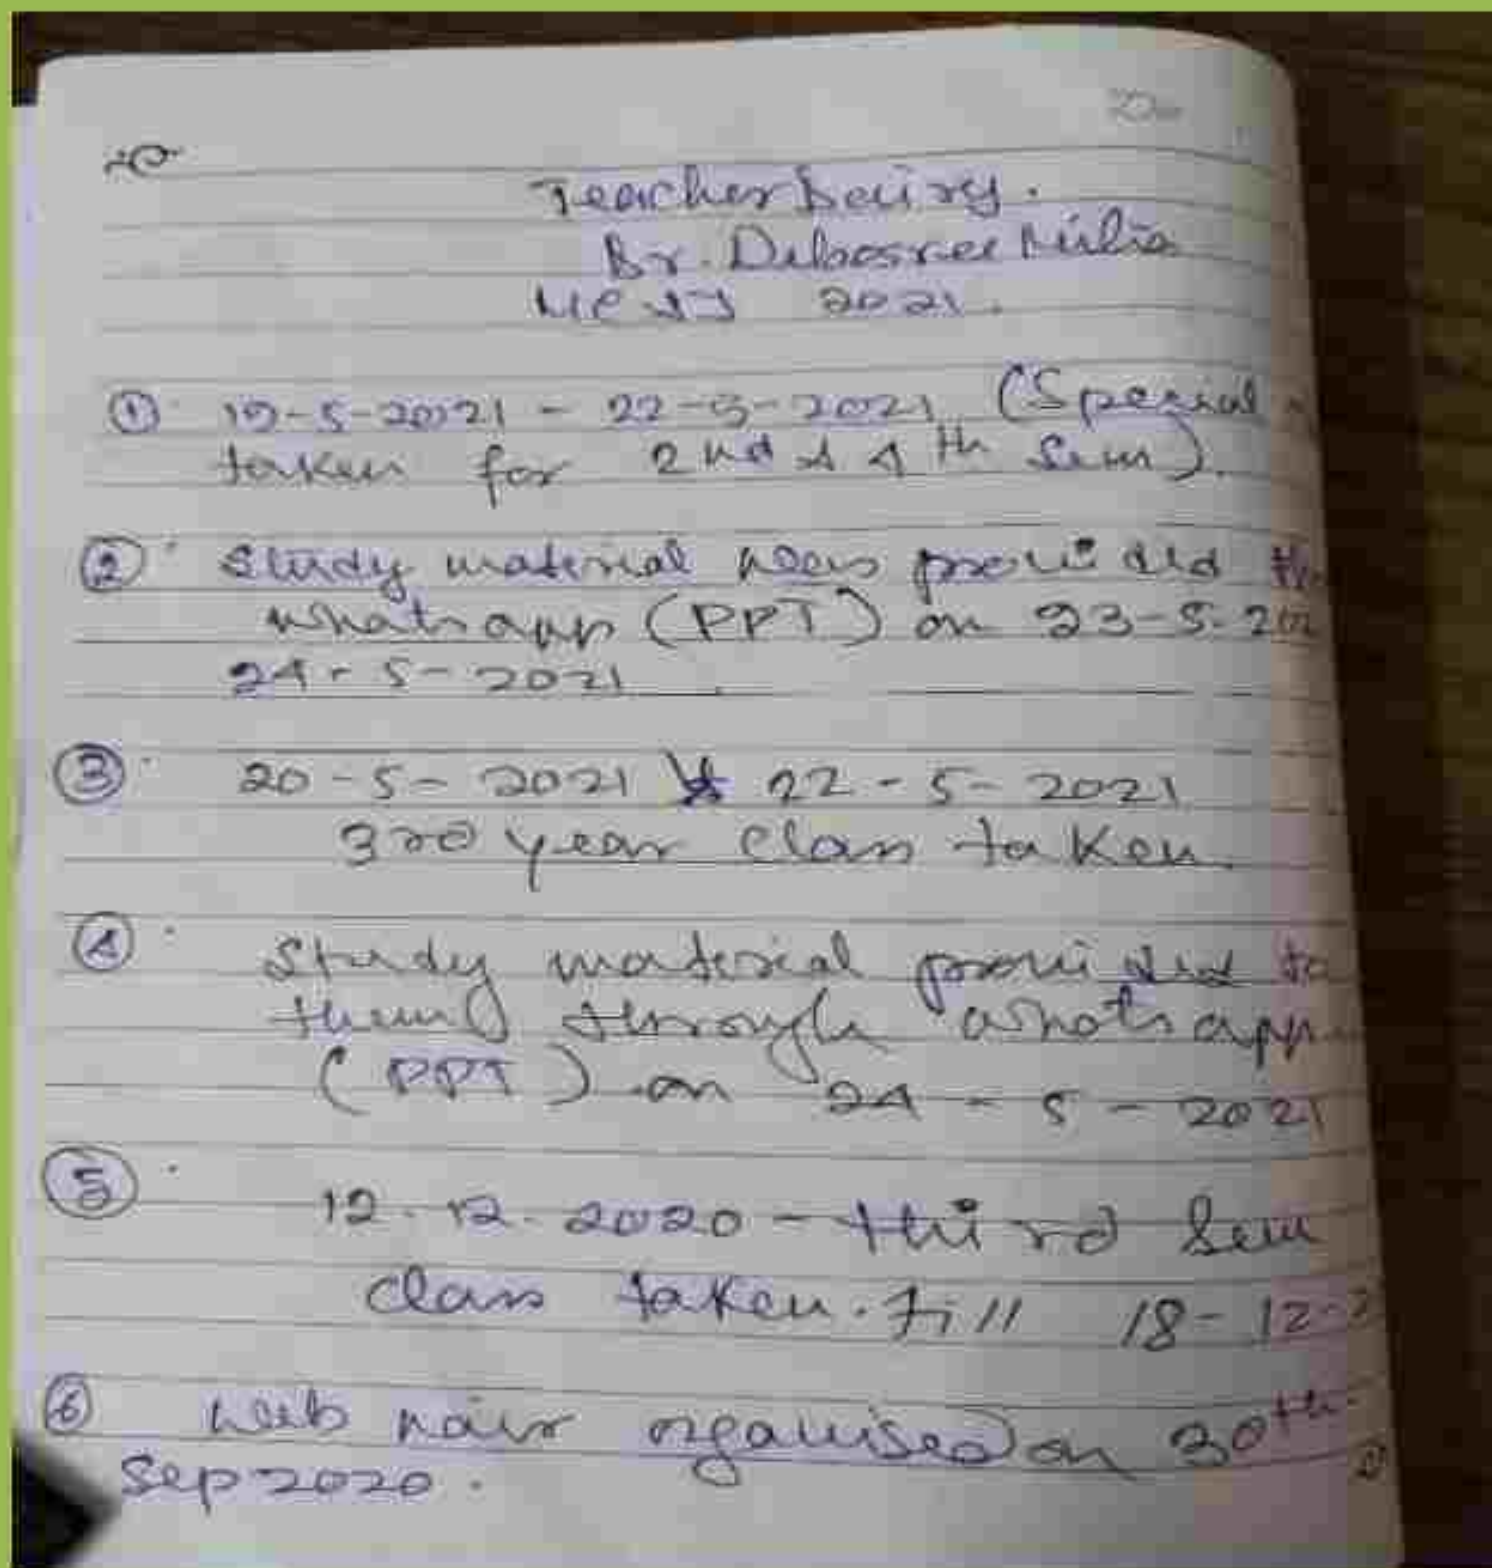 Teacher Dairy.
Dr. Debasree
2021.
① 19-5-2021 - 22-5-2021 (Special
taken for 2nd & 4th Sem).
② Study material was provided
whatsapp (PPT) on 23-5-
24-5-2021
③ 20-5-2021 & 22-5-2021
3rd year class taken.
④ Study material provided to
them through whatsapp
(PPT) on 24-5-2021
⑤ 12.12.2020 - third Sem
class taken. Till 18-12-
⑥ web nair organised on 30th
Sep 2020.